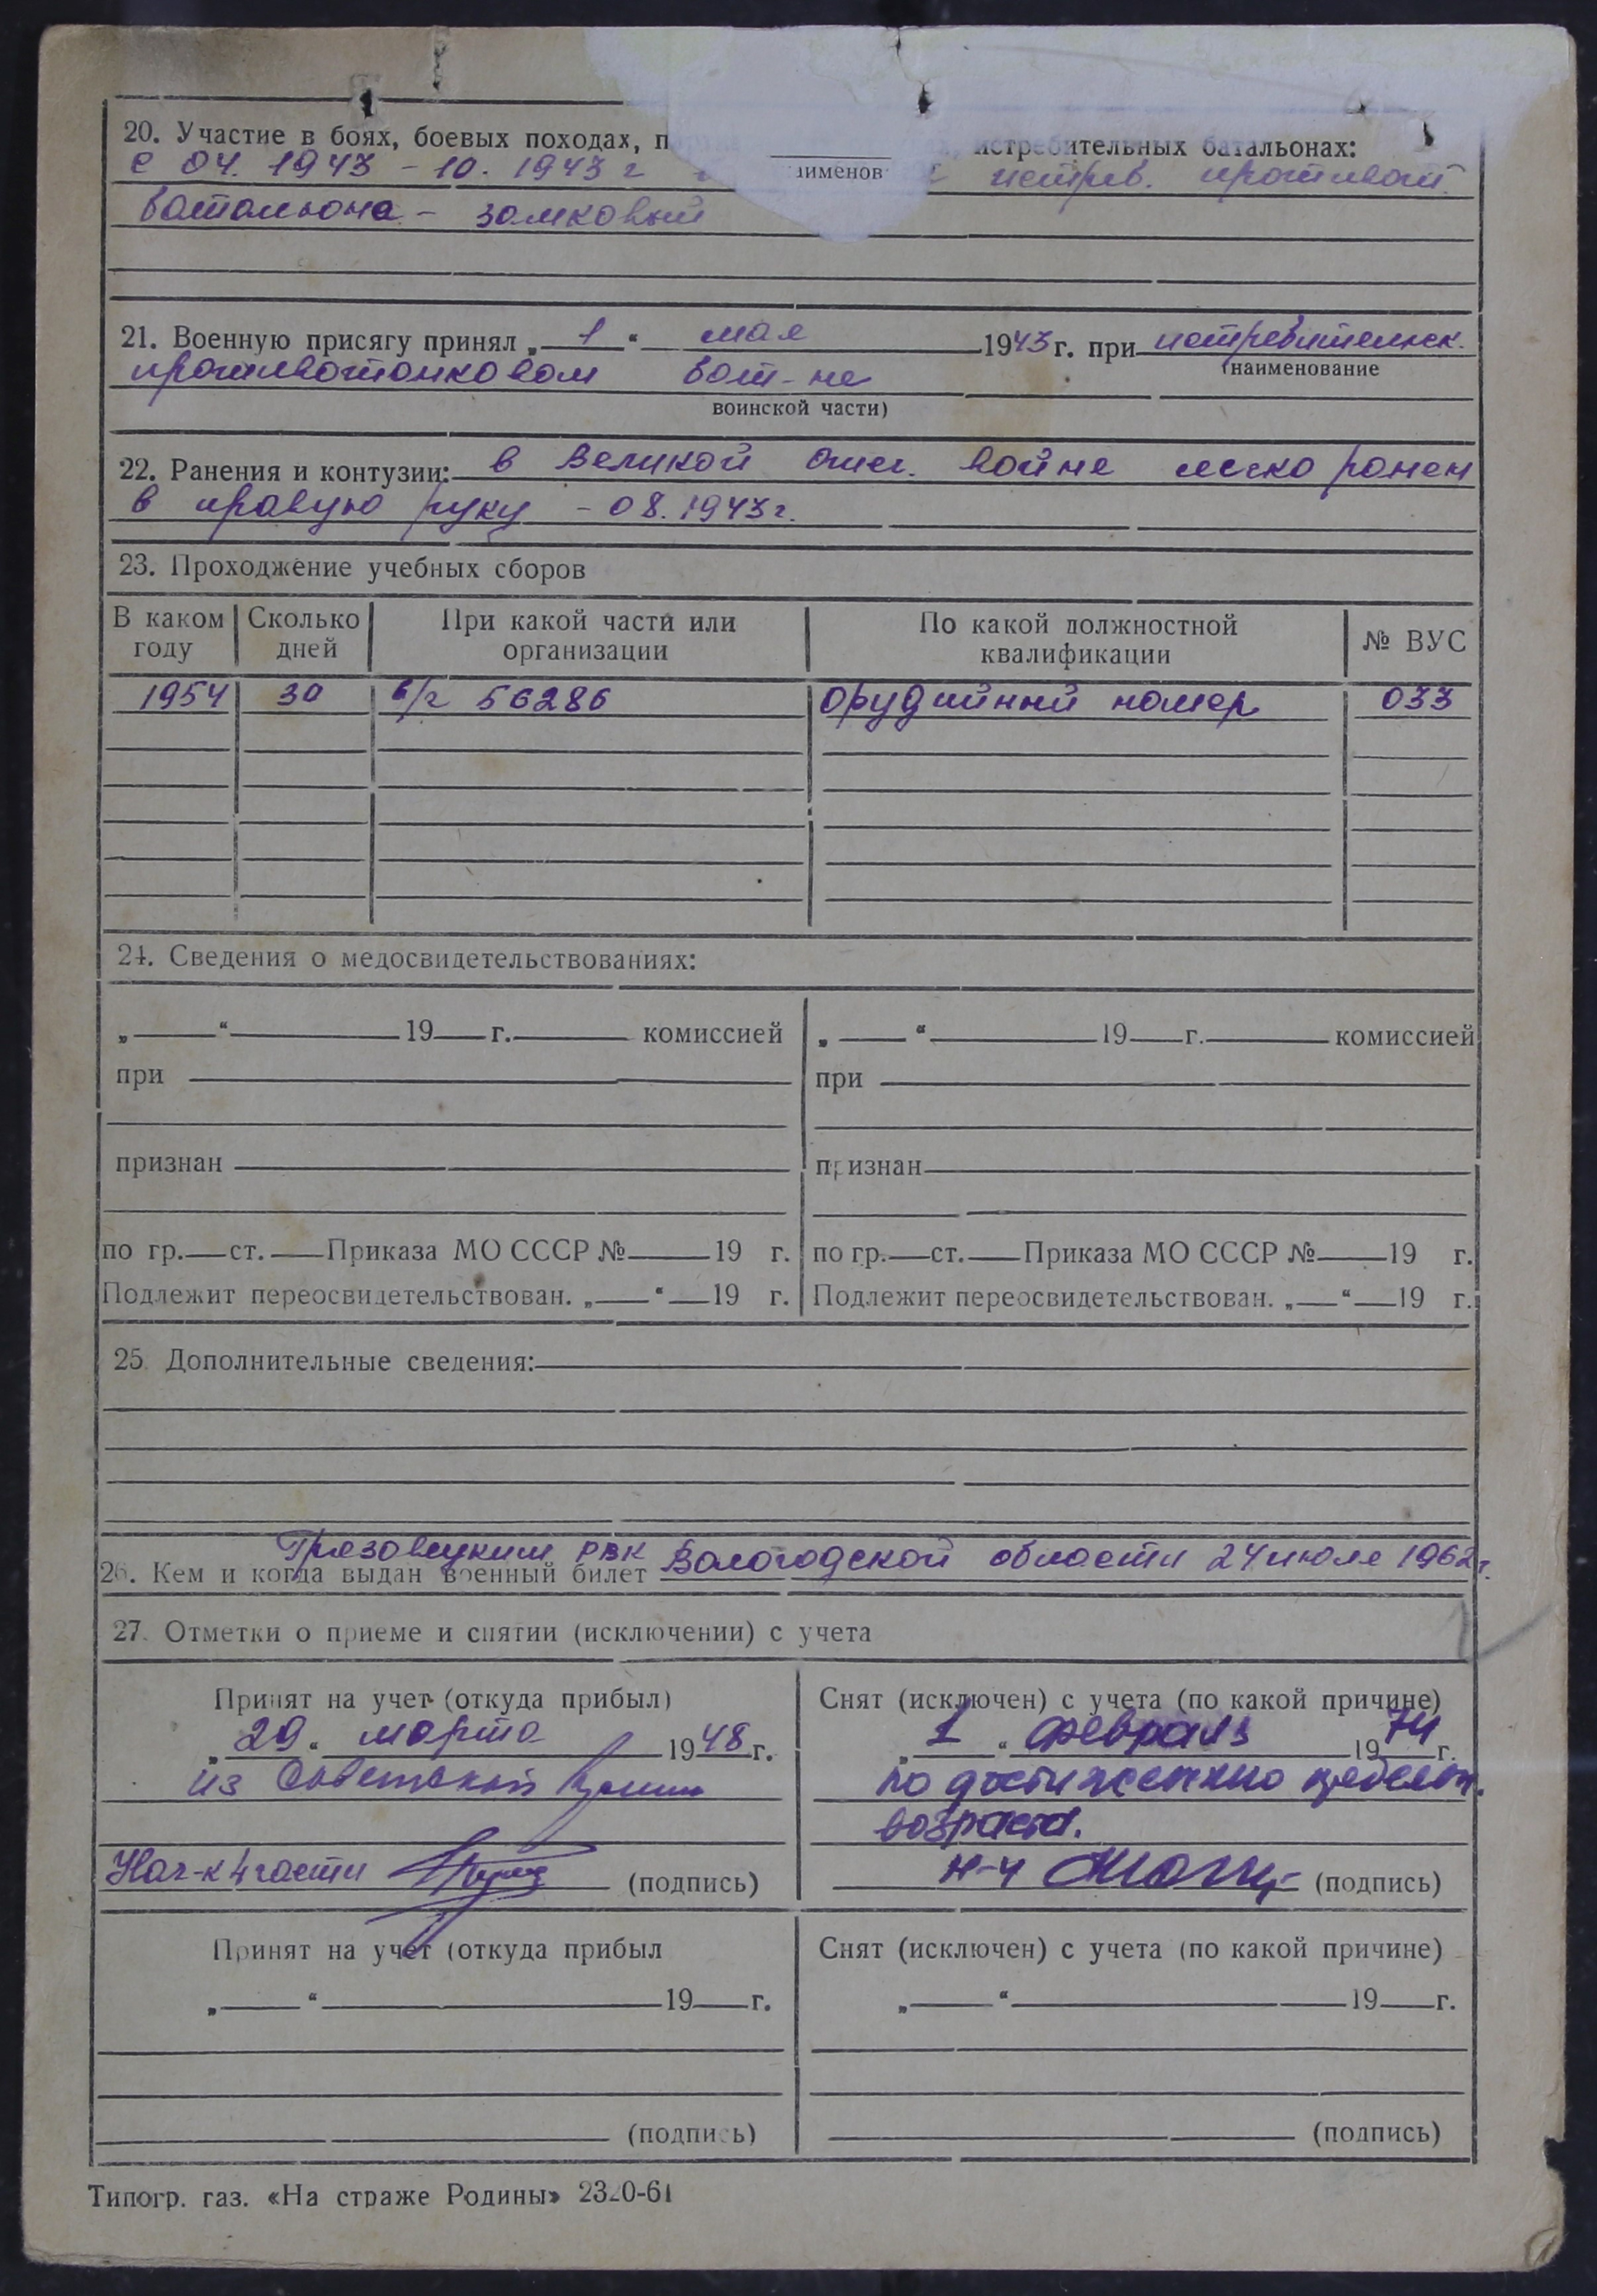 20. Участие в боях, боевых походах, п истребительных батальонах:
с 04. 1943 – 10. 1943 г истреб. противот.
именов
батальона – замковый
21. Военную присягу принял „ 1 “ мая 1943 г. при истребительск.
(наименование
противотанковом бат-не
воинской части)
22. Ранения и контузии: в Великой отеч. войне легко ранен
в правую руку – 08. 1943 г.
23. Прохождение учебных сборов
В каком году Сколько дней При какой части или организации По какой должностной квалификации № ВУС
1954 30 в/ч 56286 орудийный номер 033
24. Сведения о медосвидетельствованиях:
„ “ 19 г. комиссией „ “ 19 г. комиссией
при при
признан признан
по гр. ст. Приказа МО СССР № 19 г. по гр. ст. Приказа МО СССР № 19 г.
Подлежит переосвидетельствован. „ “ 19 г. Подлежит переосвидетельствован. „ “ 19 г.
25. Дополнительные сведения:
Грязовецким РВК Вологодской области 24 июля 1962 г.
26. Кем и когда выдан военный билет
27. Отметки о приеме и снятии (исключении) с учета
Принят на учет (откуда прибыл) Снят (исключен) с учета (по какой причине)
„ 29 “ марта 1948 г. „ 1 “ февраля 1974 г.
из Советской Армии по достижению предельн.
возраста.
Нач-к 4 части (подпись) Н-4 (подпись)
Принят на учет (откуда прибыл Снят (исключен) с учета (по какой причине)
„ “ 19 г. „ “ 19 г.
(подпись) (подпись)
Типогр. газ. «На страже Родины» 2320-61